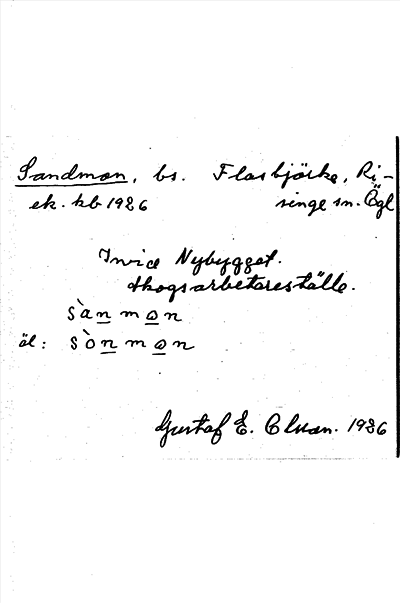 Sandmon, bs. Flasbjörke, Ri-
ek. kb 1926 singe sn. Ögl
Invid Nybygget.
skogsarbetareställe.
sànmon
äl: sònmon
Gustaf E. 1926